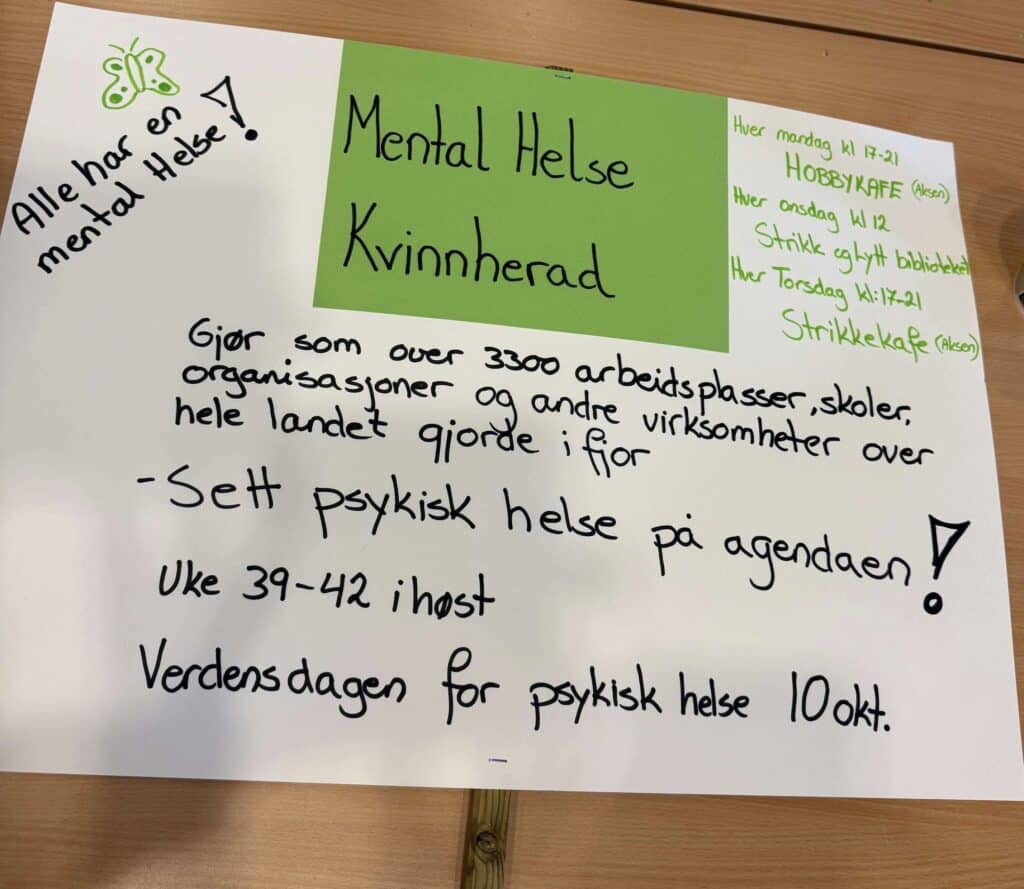 Alle har en
mental Helse!
Mental Helse
Kvinnherad
Hver mandag kl 17-21
HOBBYKAFE (Aksen)
Hver onsdag kl 12
Strikk og Lytt biblioteket
Hver Torsdag kl:17-21
Strikkekafe (Aksen)
Gjør som over 3300 arbeidsplasser, skoler,
organisasjoner og andre virksomheter over
hele landet gjorde i fjor
- Sett psykisk helse på agendaen!
Uke 39-42 i høst
Verdensdagen for psykisk helse 10 okt.